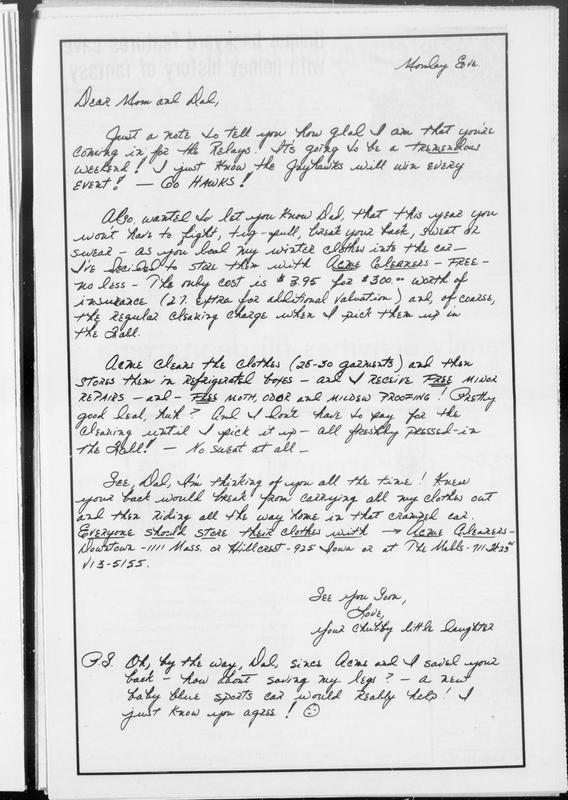 Monday Eve.
Dear Mom and Dad,
Just a note to tell you how glad I am that you're
coming in for the Relays. It's going to be a tremendous
weekend! I just know the Jayhawks will win every
event! — Go Hawks!
Also, wanted to let you know Dad, that this year you
won't have to fight, tug-pull, break your back, sweat or
swear - as you load my winter clothes into the car —
I've decided to store them with Acme Cleaners - FREE -
no less - The only cost is $3.95 for $300.00 worth of
insurance (2% extra for additional valuation) and, of coarse,
the regular cleaning charge when I pick them up in
the Fall.
Acme cleans the clothes (25-30 garments) and then
stores them in refrigerated boxes - and I receive FREE minor
repairs - and - FREE moth, odor and mildew proofing! Pretty
good deal, huh? And I don't have to pay for the
cleaning until I pick it up - all freshly pressed - in
the Fall! — No sweat at all —
See, Dad, I'm thinking of you all the time! Knew
your back would break from carrying all my clothes out
and then riding all the way home in that cramped car.
Everyone should store their clothes with → Acme Cleaners -
Downtown - 1111 Mass. or Hillcrest - 925 Iowa or at The Malls - 711 W. 23rd
VI3-5155.
See you Soon,
Love,
your chubby little daughter
P.S. Oh, by the way, Dad, since Acme and I saved your
back - how about saving my legs? - a new
baby blue sports car would really help! I
just know you agree!